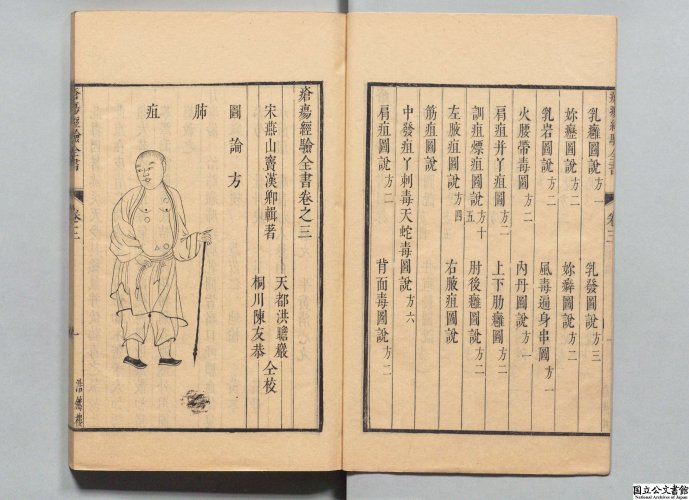 瘡瘍經驗全書 卷三
乳癰圖說 方一 乳發圖說 方三
妳癧圖說 方二 妳癖圖說 方二
乳岩圖說 方二 風毒遍身串圖 方一
火腰帶毒圖 方二 內丹圖說 方一
肩疽并丫疽圖 方二 上下肋癰圖 方二
訓疽熛疽圖說 方十五 肘後癰圖說 方二
左腋疽圖說 方四 右腋疽圖說
筋疽圖說
中發疽丫刺毒天蛇毒圖說 方六
肩疽圖說 方二 背面毒圖說 方二
瘡瘍經驗全書卷之三
宋燕山竇漢卿輯著 天都洪瞻巖 桐川陳友恭 仝校
圖論方
肺疽
瘡瘍經驗全書 卷三 一 浩然樓
国立公文書館
National Archives of Japan